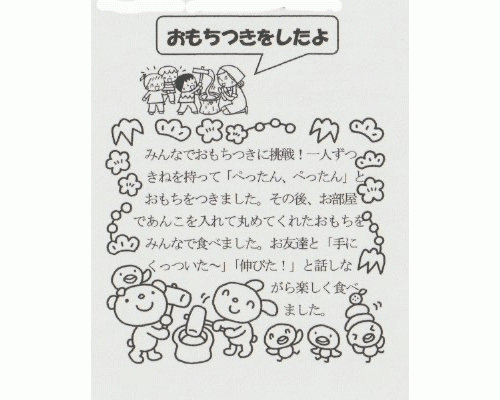 おもちつきをしたよ
みんなでおもちつきに挑戦！一人ずつ
きねを持って「ぺったん、ぺったん」と
おもちをつきました。その後、お部屋
であんこを入れて丸めてくれたおもちを
みんなで食べました。お友達と「手に
くっついた～」「伸びた！」と話しな
がら楽しく食べ
ました。